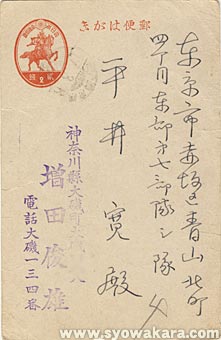 郵便はがき
東京市赤坂区青山北町
四丁目東部第七部隊シ隊
平井寛殿
神奈川縣大磯町
増田俊雄
電話大磯一三四番
www.syowakara.com